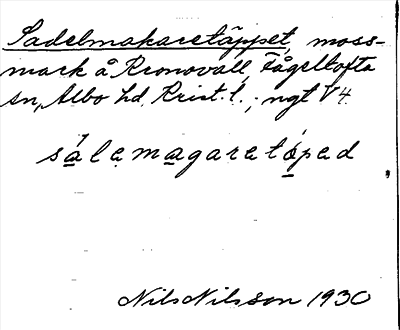 Sadelmakaretäppet, moss-
mark å Kronovall, Fågeltofta
sn, Albo hd, Krist. l.; ngt V4.
sálemagaretáped
Nils Nilsson 1930